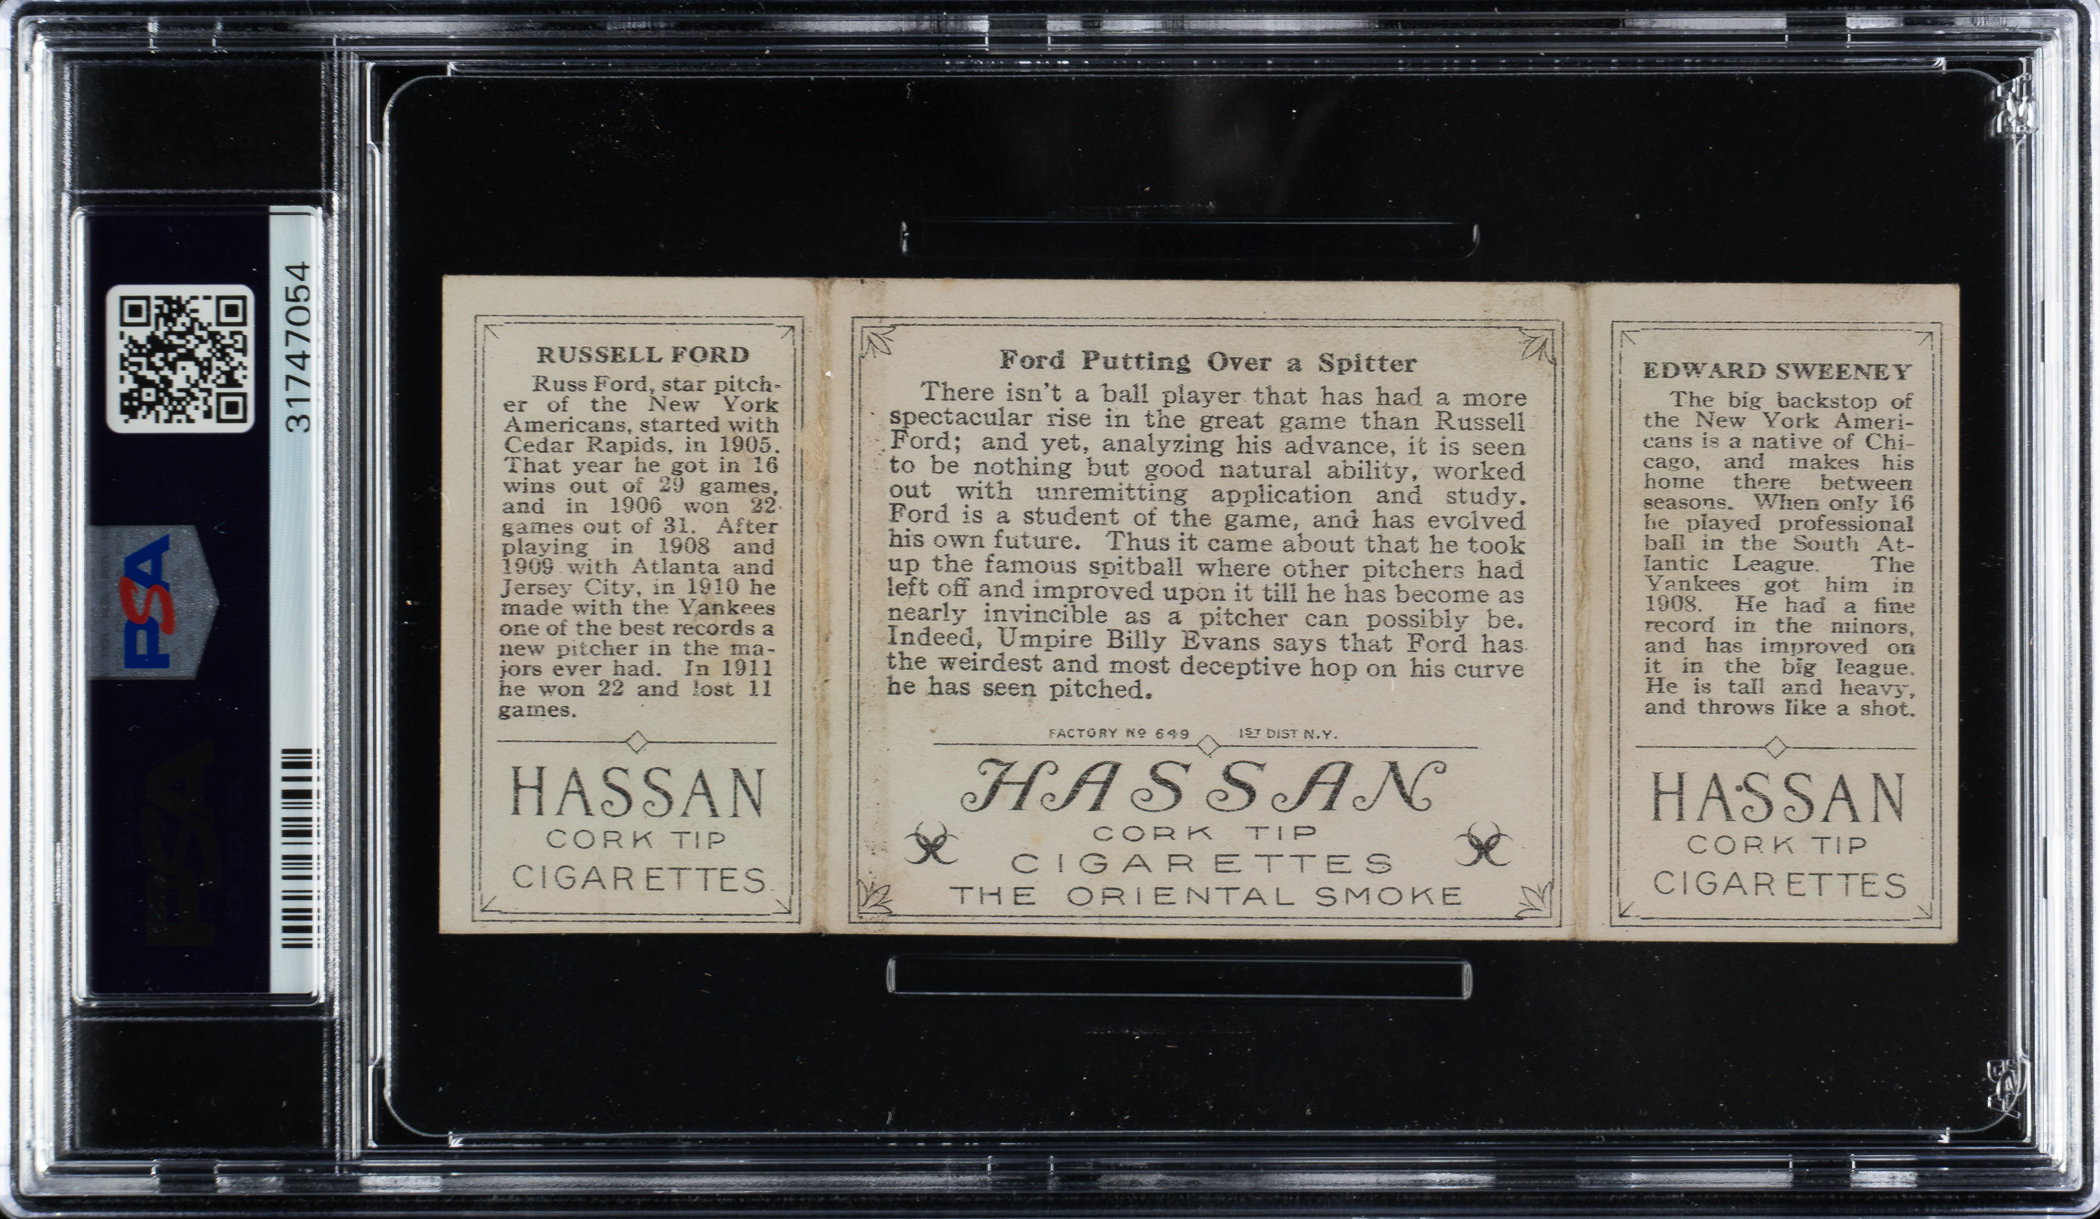 31747054
PSA
PSA
RUSSELL FORD
Russ Ford, star pitch-
er of the New York
Americans, started with
Cedar Rapids, in 1905.
That year he got in 16
wins out of 29 games,
and in 1906 won 22
games out of 31. After
playing in 1908 and
1909 with Atlanta and
Jersey City, in 1910 he
made with the Yankees
one of the best records a
new pitcher in the ma-
jors ever had. In 1911
he won 22 and lost 11
games.
HASSAN
CORK TIP
CIGARETTES
Ford Putting Over a Spitter
There isn't a ball player that has had a more
spectacular rise in the great game than Russell
Ford; and yet, analyzing his advance, it is seen
to be nothing but good natural ability, worked
out with unremitting application and study.
Ford is a student of the game, and has evolved
his own future. Thus it came about that he took
up the famous spitball where other pitchers had
left off and improved upon it till he has become as
nearly invincible as a pitcher can possibly be.
Indeed, Umpire Billy Evans says that Ford has
the weirdest and most deceptive hop on his curve
he has seen pitched.
FACTORY Nº 649 1ST DIST N.Y.
HASSAN
CORK TIP
CIGARETTES
THE ORIENTAL SMOKE
EDWARD SWEENEY
The big backstop of
the New York Ameri-
cans is a native of Chi-
cago, and makes his
home there between
seasons. When only 16
he played professional
ball in the South At-
lantic League. The
Yankees got him in
1908. He had a fine
record in the minors,
and has improved on
it in the big league.
He is tall and heavy,
and throws like a shot.
HASSAN
CORK TIP
CIGARETTES